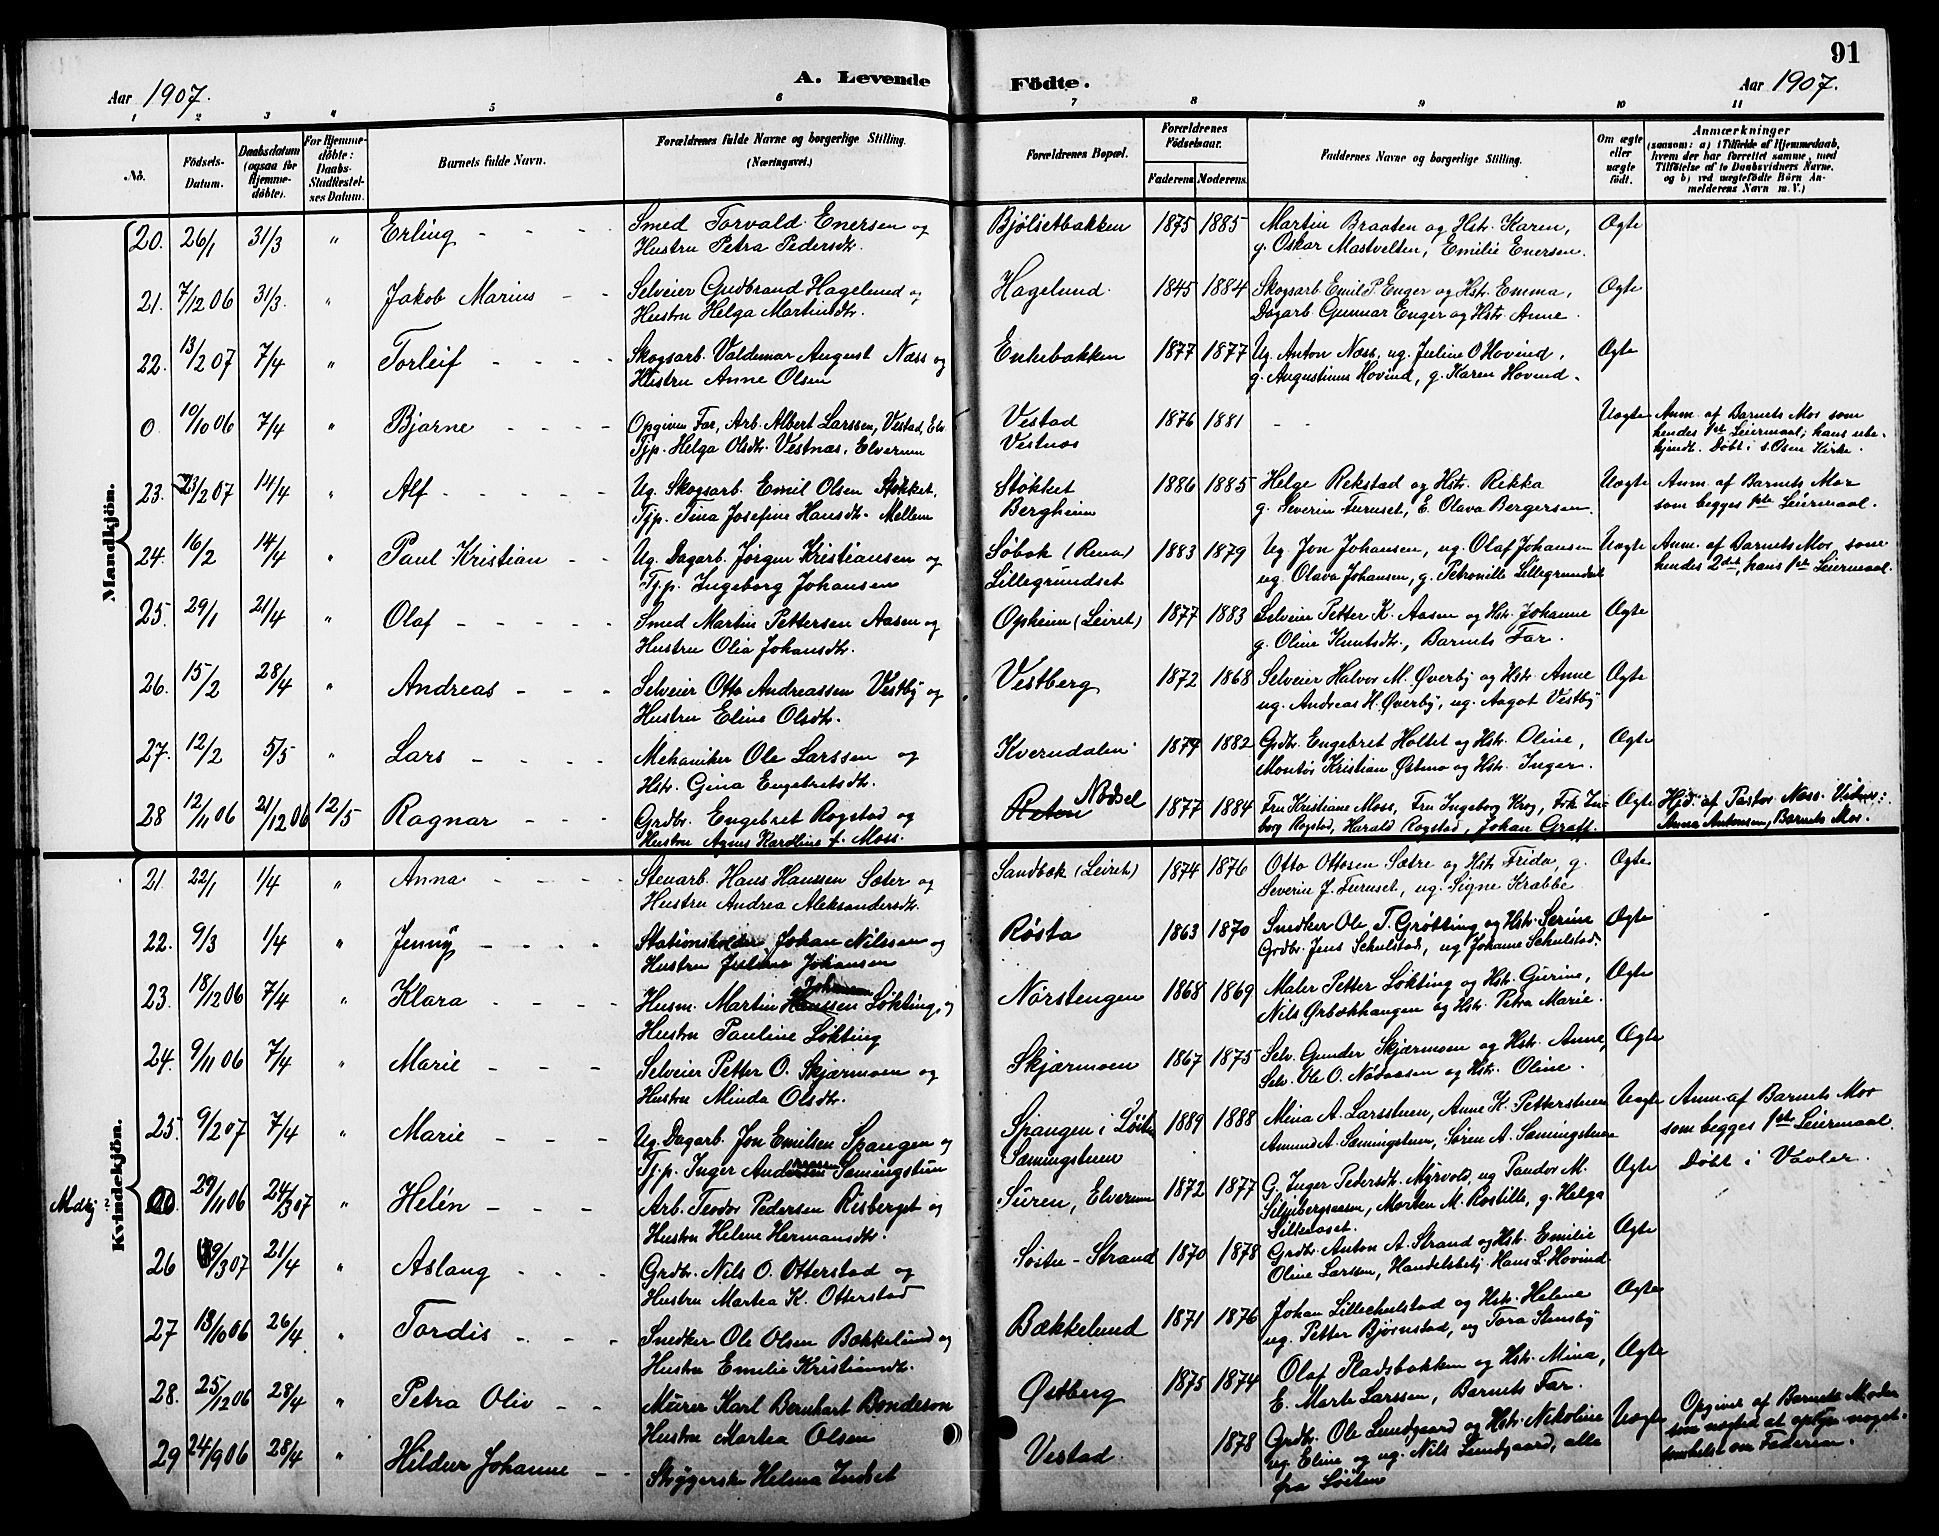 91
A. Levende Födte.
Aar 1907.
Aar 1907.
1 2 3 " 5 6 7 8 9 10 11
No.
Födsels-Datum.
Daabsdatum (ogsaa for Hjemmedöbte).
For Hjemmedöbte: Daabs-Stadfæstelses Datum.
Barnets fulde Navn.
Forældrenes fulde Navne og borgerlige Stilling. (Næringsvei.)
Forældrenes Bopæl.
Forældrenes Födselsaar.
Faderens. Moderens.
Faddernes Navne og borgerlige Stilling.
Om ægte eller uægte födt.
Anmærkninger
(saasom: a) i Tilfælde af Hjemmedaab, hvem der har forrettet samme, med Tilföielse af to Daabsvidners Navne, og b) ved uægtefödte Börn Anmelderens Navn m. V.)
Mandkjön.
20. 26/1 31/3 " Erling - - - - Smed Torvald Enersen og Bjølsetbakken 1875 1885 Martin Braaten og Hstr. Karen, Ægte
Hustru Petra Pedersdtr. g. Oskar Mastvelten, Emilie Enersen.
21. 7/12 06 31/3. " Jakob Marius - - Selveier Gudbrand Hagelund og Hagelund. 1845 1884 Skogsarb. Emil P. Enger og Hstr. Emma, Ægte
Hustru Helga Martinsdtr. Dagarb. Gunnar Enger og Hstr. Anne.
22. 13/2 07 7/4 " Torleif - - - - Skogsarb. Valdemar August Næss og Enkebakken 1877 1877 Ug. Anton Næss, ug. Juline O Hovind, Ægte
Hustru Anne Olsen g. Augustinus Hovind, g. Karen Hovind.
0. 10/10 06 7/4 " Bjarne - - - - Opgiven Far, Arb. Albert Larssen, Vestad, Elv. Vestad 1876 1881 - - Uægte Anm. af Barnets Mor som
Tjp. Helga Olsdtr. Vestnæs, Elverum Vestnæs hendes 1ste Leiermaal; hans ube-
kjendt. Døbt i s. Osen Kirke.
23. 23/2 07 14/4 " Alf - - - - - Ug. Skogsarb. Emil Olsen Støkket, Støkket 1886 1885 Helge Rekstad og Hstr. Rikka Uægte Anm. af Barnets Mor
Tjp. Tina Josefine Hansdtr. Mellem Bergheim g. Severin Furuset, E. Olava Bergersen. som begges 1ste Leiermaal.
24. 16/2 14/4 " Paul Kristian - - Ug. Dagarb. Jørgen Kristiansen og Søbak (Rena) 1883 1879 Ug. Jon Johansen, ug. Olaf Johansen Uægte Anm. af Barnets Mor, som
Tj.p. Ingeborg Johansen Lillegrundset ug. Olava Johansen, g. Petronille Lillegrundset hendes 2det, hans 1ste Leiermaal.
25. 29/1 21/4 " Olaf - - - - - Smed Martin Pettersen Aasen og Opheim (Leiret) 1877 1883 Selveier Petter K. Aasen og Hstr. Johanne Ægte
Hustru Olia Johansdtr. g. Oline Knutsdtr., Barnets Far.
26. 15/2 28/4 " Andreas - - - Selveier Otto Andreassen Vestby og Vestberg 1872 1868 Selveier Halvor M. Øverby og Hstr. Anne Ægte
Hustru Eline Olsdtr. ug. Andreas H. Øverby, ug. Aagot Vestby
27. 12/2 5/5 " Lars - - - - Mekaniker Ole Larssen og Kverndalen 1879 1882 Grdbr. Engebret Holtet og Hstr. Oline, Ægte
Hstr. Gina Engebretsdtr. Montør Kristian Østmo og Hstr. Inger.
28 12/11 06 21/12 06 12/5 Ragnar - - - Grdbr. Engebret Rogstad og Nødsel 1877 1884 Fru Kristiane Moss, Fru Ingeborg Krog, Frk. Inge- Ægte Hjd. af Pastor Næss. Vidner:
Hustru Agnes Karoline f. Moss. borg Rogstad, Harald Rogstad, Johan Graff. Anna Antonsen, Barnets Mor.
Kvindekjön.
21. 22/1 1/4 " Anna - - - - Stenarb. Hans Hanssen Sæter og Sandbæk (Leiret) 1874 1876 Otto Ottosen Sætre og Hstr. Frida, g. Ægte
Hustru Andrea Aleksandersdtr. Severin J. Furuset, ug. Signe Krabbe
22. 9/3 1/4 " Jenny - - - - Stationsholder Johan Nilssen og Røsta 1863 1870 Snedker Ole T. Grøtting og Hstr. Serine Ægte
Hustru Juline Johansen Grdbr. Jens Schulstad, ug Johanne Schulstad.
23. 18/12 06 7/4 " Klara - - - - Husm. Martin Hanssen Johansen Løkting, og Nørstengen 1868 1869 Maler Petter Løkting og Hstr. Gurine, Ægte
Hustru Pauline Løkting Nils Ørbækhaugen og Hstr. Petra Marie.
24. 9/11 06 7/4 " Marie - - - Selveier Petter O. Skjærmoen og Skjærmoen 1867 1875 Selv. Gunder Skjærmoen og Hstr. Anne, Ægte
Hustru Minda Olsdtr. Selv. Ole O. Nødaasen og Hstr. Oline.
25. 9/2 07 7/4 " Marie - - - Ug. Dagarb. Jon Emilsen Spangen og Spangen i Løiten 1889 1888 Mina A. Larsstuen, Anne K. Petterstuen Uægte Anm. af Barnets Mor
Tj.p. Inger Sæmingstuen Sæmingstuen Amund A. Sæmingstuen, Søren A. Sæmingstuen som begges 1ste Leiermaal.
00. 29/11 06 24/3 07 " Helén - - - Arb. Teodor Pedersen Risberget og Süren, Elverum 1872 1877 G. Inger Pedersdtr. Myrvold, ug Pandor M. Ægte Døbt i Vaaler.
Hustru Helene Hermansdtr. Siljubergsæsen, Morten M. Rostille, g. Helga
26 9/3 07 21/4 " Aslaug - - - Grdbr. Nils O. Otterstad og Søstu-Strand 1870 1878 Grdbr. Anton A. Strand og Hstr. Emilie Ægte
Hustru Martea K. Otterstad Oline Larssen, Handelsbetj. Hans L. Hovind
27 13/10 06 26/4 " Tordis - - - Snedker Ole Olsen Bækkelund og Bækkelund 1871 1876 Johan Lilleschulstad og Hstr. Helene Ægte
Hustru Emelie Kristiansdtr. ug. Petter Bjørnstad, ug Tora Stensby
28. 25/12 06 28/4 " Petra Oliv - - Murer Karl Bernhart Bondeson Østberg 1875 1874 Olaf Pladsbakken og Hstr. Mina, Ægte
Hustru Martea Olsen E. Marte Larssen, Barnets Far.
29 24/9 06 28/4 " Hildur Johanne - - Skryggerske Helma Indset Vestad. 1878 Grdbr. Ole Lundgaard og Hstr. Nikoline Uægte Opgivet af Barnets Moder
ug. Eline og ug. Nils Lundgaard, alle som nægted at oplyse noget-
fra Løiten somhelst om Faderen.